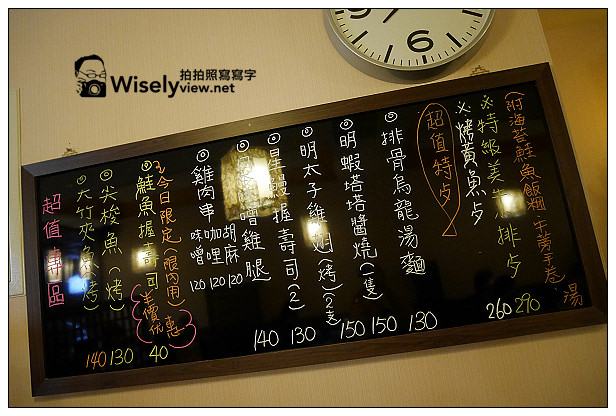 拍拍照寫寫字
Wiselyview.net
(附海苔鮭魚飯糰.牛蒡手卷)湯
※特級美 排夕 290
※烤黃魚夕 260
超值特夕
◎排骨烏龍湯麵 130
◎明蝦塔塔醬燒(一隻) 150
◎明太子雞翅(烤)(2支) 150
◎星鰻握壽司(2) 130
◎ 噌雞腿 140
◎雞肉串
胡麻 120
咖哩 120
味噌 120
今日限定(限內用)
半價优惠
◎鮭魚握壽司 40
◎尖梭魚(烤) 130
◎大竹夾魚(烤) 140
超值專區